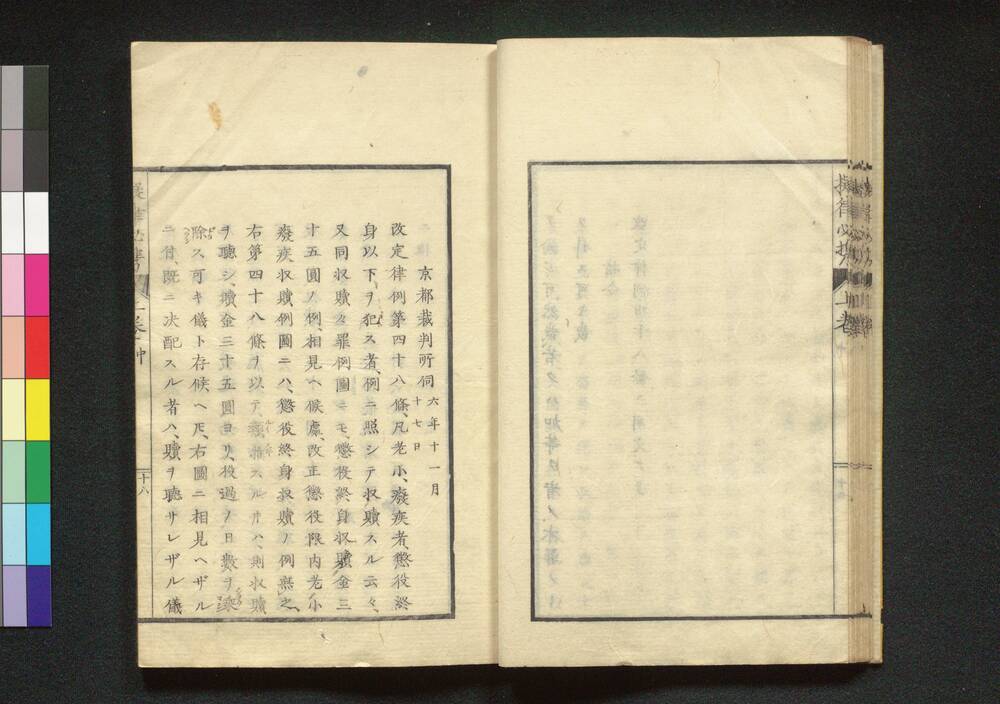 擬律必携
上卷
京都裁判所伺 六年十一月
十七日
改定律例第四十八條、凡老小、癈疾者、懲役終
身以下、ヲ犯ス者、例ニ照シテ収贖スル云々、
又同収贖々罪例圖ニモ、懲役終身収贖金三
十五圓ノ例、相見ヘ候處、改正懲役限内老小
癈疾収贖例圖ニハ、懲役終身収贖ノ例無之、
右第四十八條ヲ以テ、スル井ハ、則収贖
ヲ聽シ、贖金三十五圓ヨリ、役過ノ日數ヲ
除ス可キ儀ト存候ヘ𪜈、右圖ニ相見ヘザル
ニ付、既ニ決配スル者ハ、贖ヲ聽サレザル儀
十八